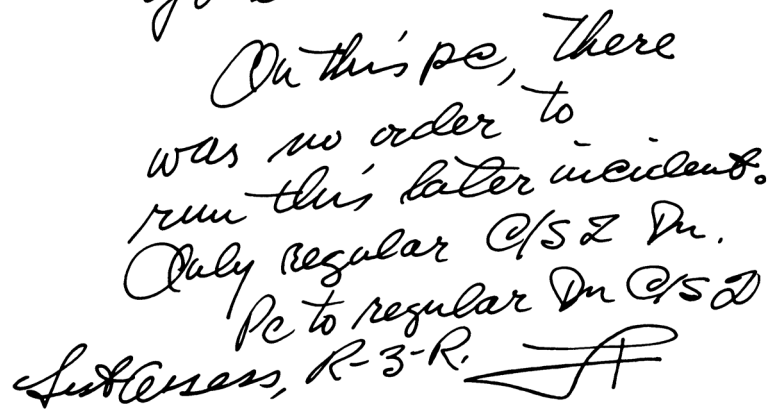 On this pc, there
was no order to
run this later incident.
Only regular C/S 2 Dn.
Pc to regular Dn C/S 2
List Assess, R-3-R.